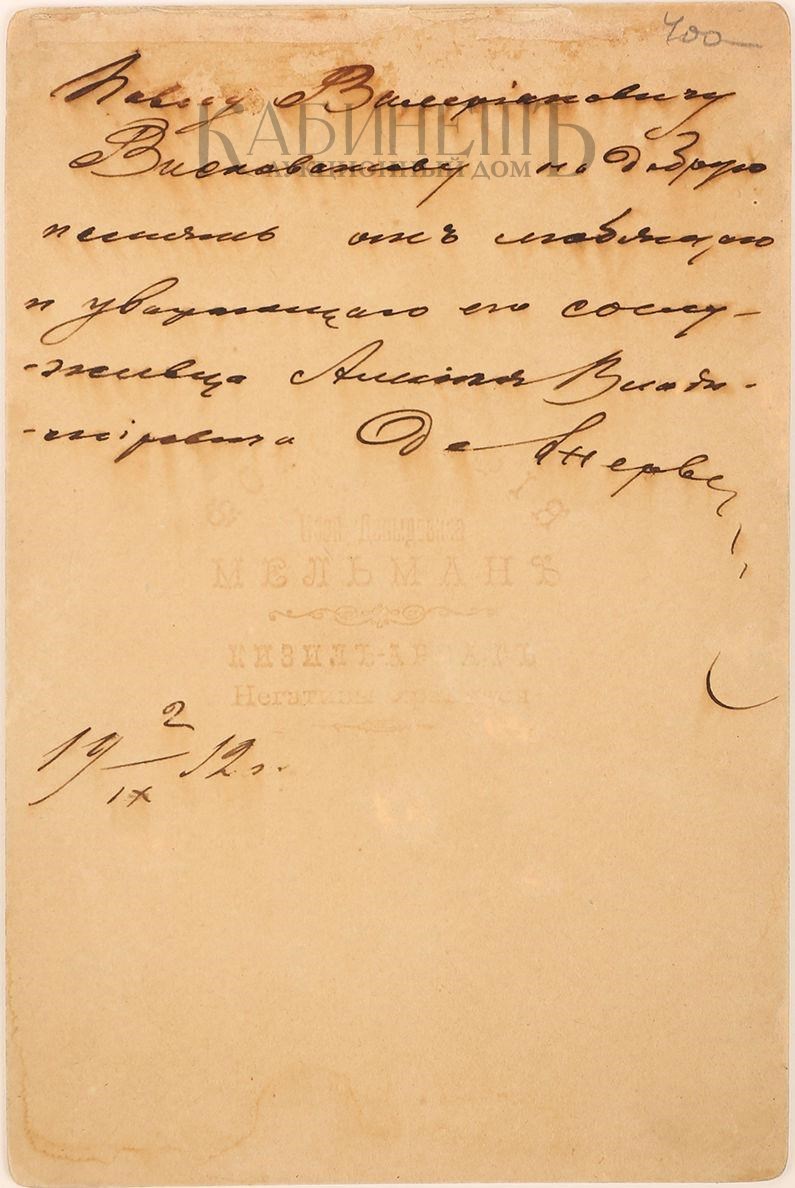 400
Павлу Валеріановичу
КАБИНЕТЪ
АУКЦИОННЫЙ ДОМ
Висковатову на добрую
память отъ любящаго
и уважающаго его сослу-
-живца Алексѣя Влади-
-міровича Де
МЕЛЬМАНЪ
КИЗИЛЪ-АРВАТЪ
Негативы хранятся
19 2/IX 12 г.